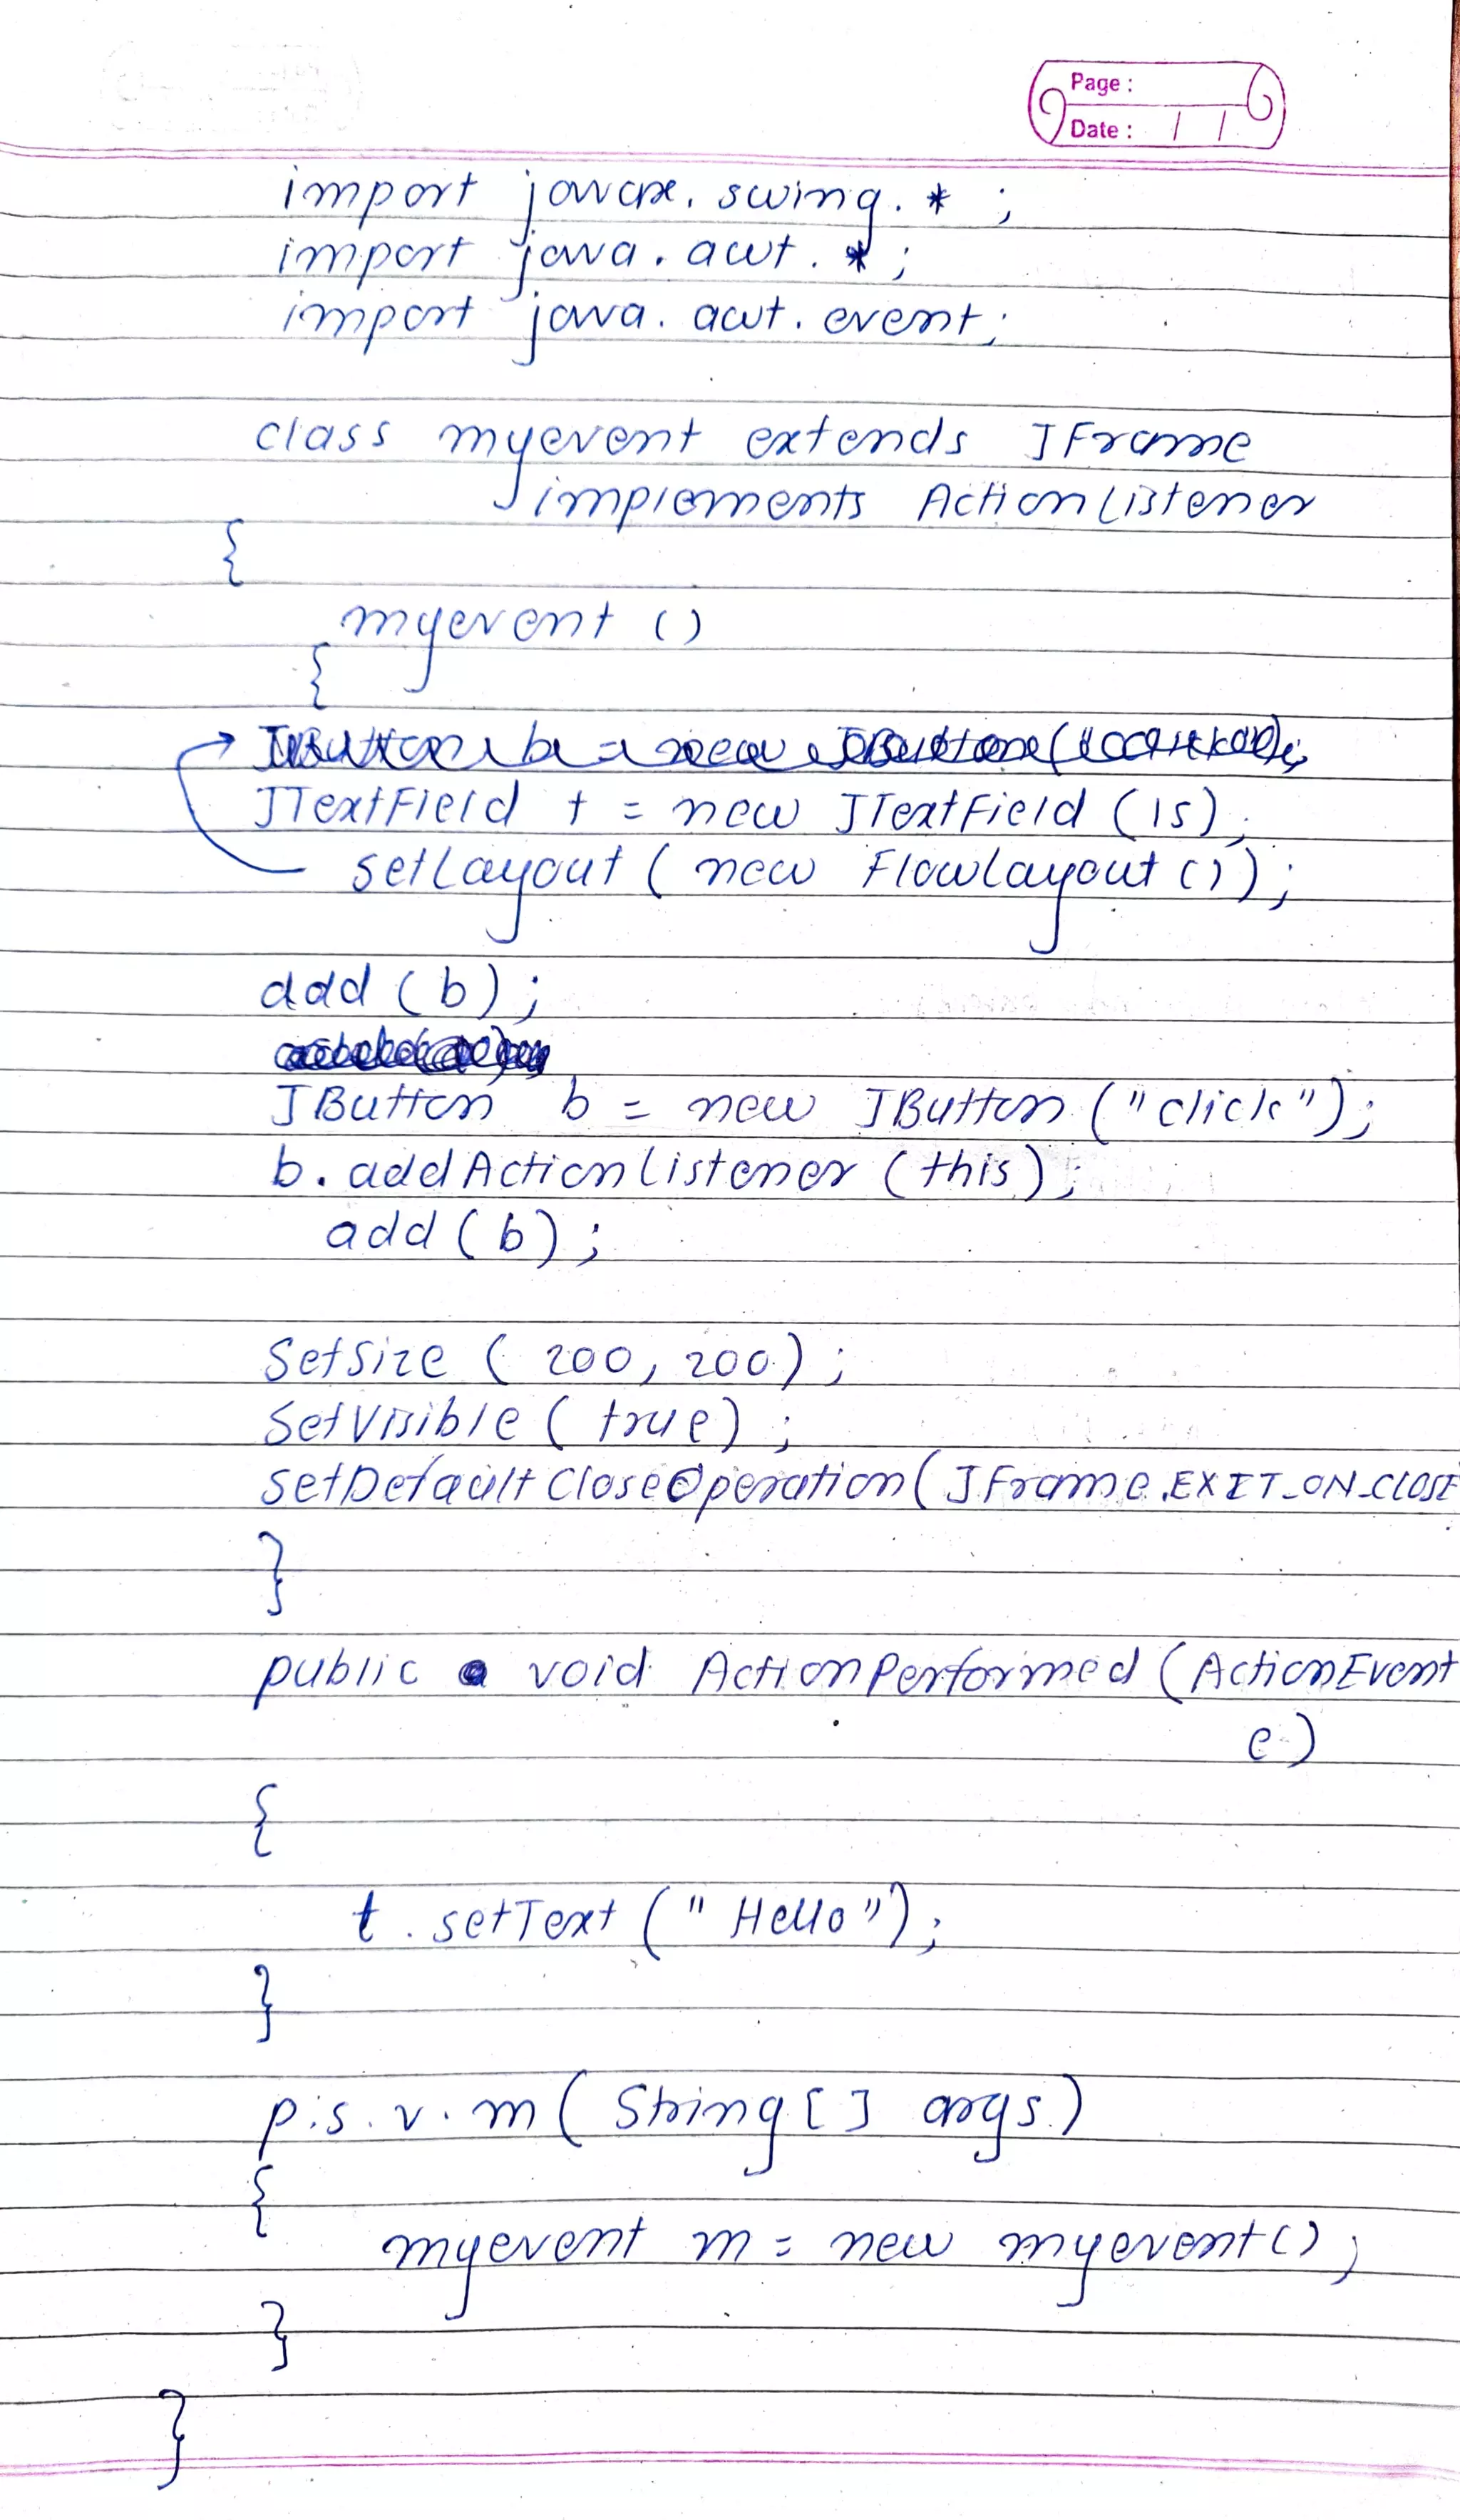 Page :
Date : / /
import javax. swing. * ;
import java. awt. * ;
import java. awt. event;
class myevent extends JFrame
implements ActionListener
{
myevent ()
{
JTextField t = new JTextField (15);
setLayout ( new FlowLayout () );
add (b) ;
JButton b = new JButton ("click");
b. addActionListener (this);
add (b) ;
SetSize ( 200, 200) ;
SetVisible ( true) ;
SetDefaultCloseOperation ( JFrame.EXIT_ON_CLOSE
}
public void ActionPerformed (ActionEvent
e)
{
t . setText (" Hello");
}
p.s. v. m ( String [] args )
{
myevent m = new myevent() ;
}
}